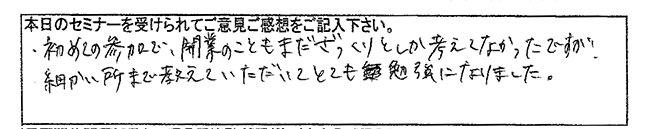 本日のセミナーを受けられてご意見ご感想をご記入下さい。
・初めての参加で、開業のこともまだざっくりとしか考えてなかったですが、
細かい所まで教えていただいてとても勉強になりました。